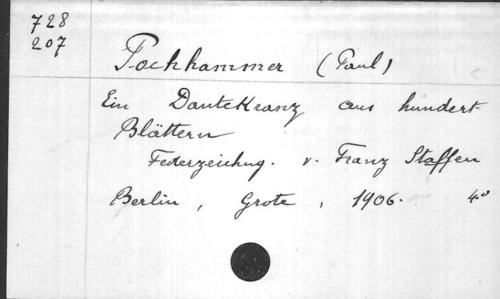 728
207
Pochhammer (Paul)
Ein Dantekranz aus hundert
Blättern
Federzeichng. v. Franz Staffen
Berlin, Grote, 1906. 4°